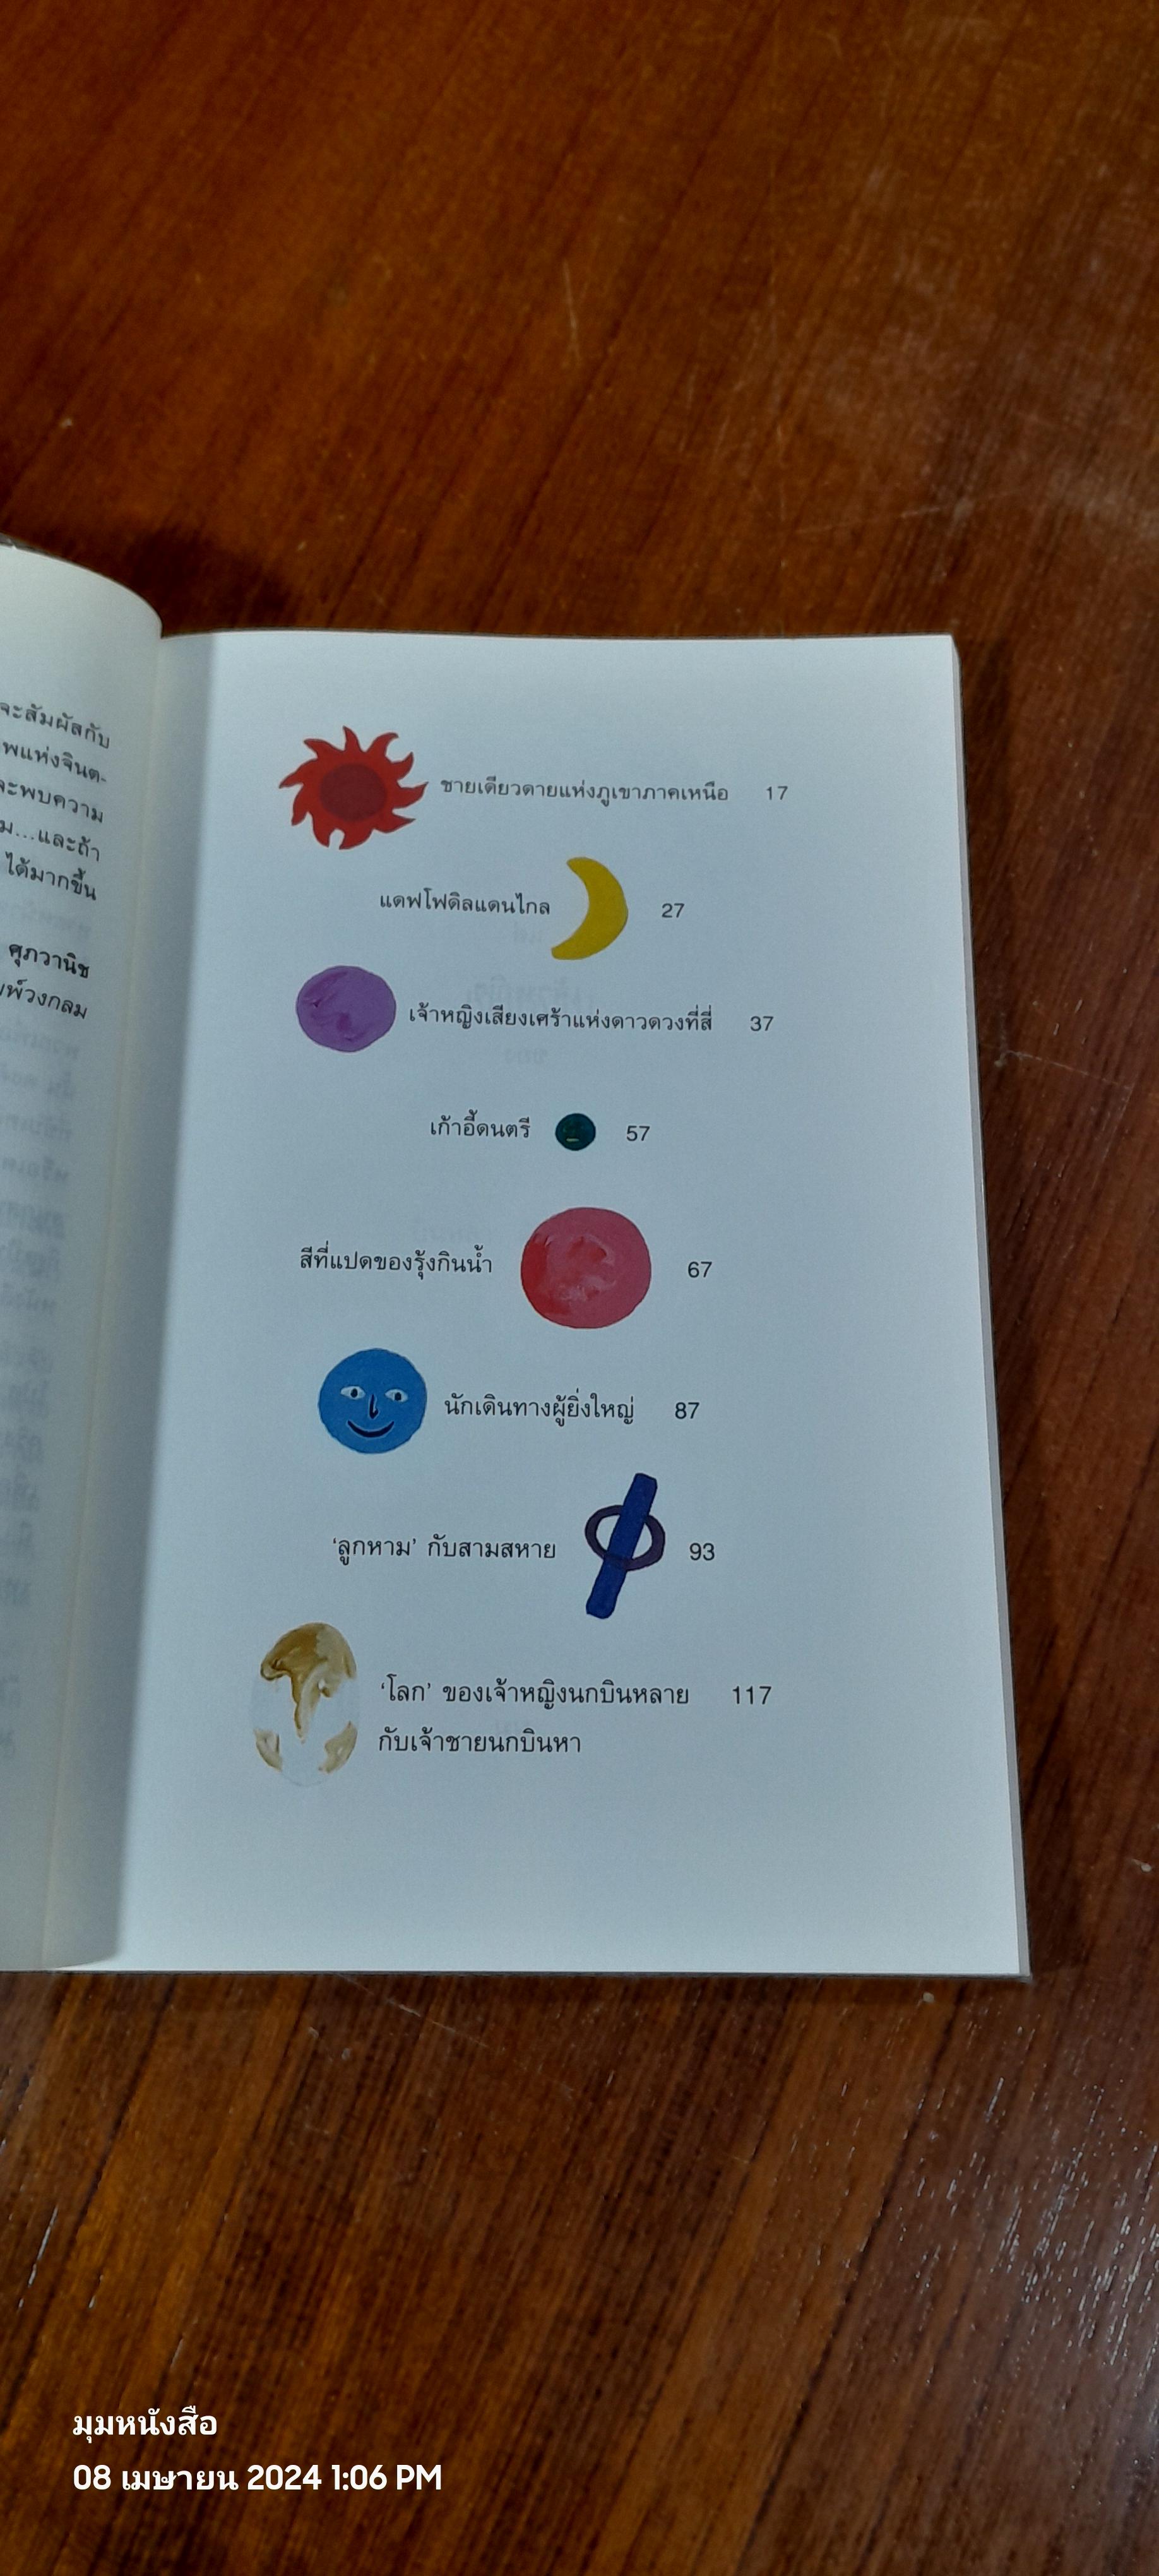 จะสัมผัสกับ
พแห่งจินต-
ะพบความ
ม...และถ้า
ได้มากขึ้น
ศุภวานิช
พ์วงกลม
ชายเดียวดายแห่งภูเขาภาคเหนือ 17
แดฟโฟดิลแดนไกล 27
เจ้าหญิงเสียงเศร้าแห่งดาวดวงที่สี่ 37
เก้าอี้ดนตรี 57
สีที่แปดของรุ้งกินน้ำ 67
นักเดินทางผู้ยิ่งใหญ่ 87
‘ลูกหาม’ กับสามสหาย 93
‘โลก’ ของเจ้าหญิงนกบินหลาย 117
กับเจ้าชายนกบินหา
มุมหนังสือ
08 เมษายน 2024 1:06 PM